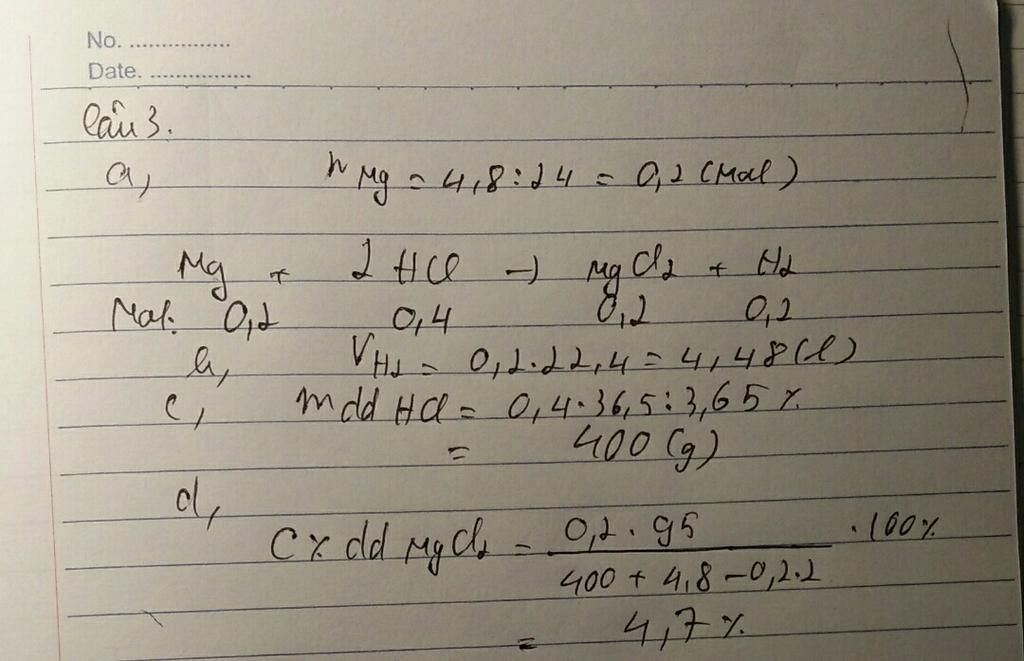 No. ................
Date. ................
Câu 3.
a, nMg = 4,8:24 = 0,2 (mol)
Mg + 2HCl → MgCl2 + H2
Mol: 0,2 0,4 0,2 0,2
b, VH2 = 0,2.22,4 = 4,48(l)
c, mddHCl = 0,4.36,5:3,65%
= 400(g)
d,
C% dd MgCl2 = 0,2.95 / 400 + 4,8 - 0,2.2 .100%
= 4,7%